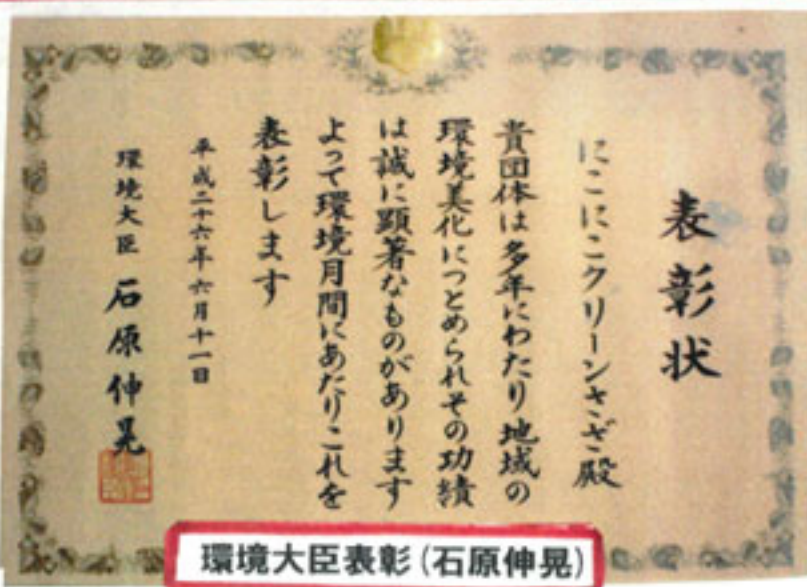 表彰状
にこにこクリーンさざ殿
貴団体は多年にわたり地域の
環境美化につとめられその功績
は誠に顕著なものがあります
よって環境月間にあたりこれを
表彰します
平成二十六年六月十一日
環境大臣 石原伸晃
環境大臣表彰(石原伸晃)